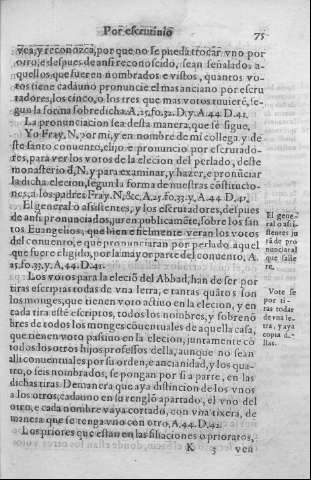 Por escrutinio 75
vea, y reconozca, por que no se pueda trocar vno por
otro, e despues de ansi reconosçido, sean señalados a-
quellos que fueren nombrados e vistos, quantos vo-
tos tiene cada vno pronuncie el mas anciano por escru
tadores, los cinco, o los tres que mas votos tuuierē, se-
gun la forma sobredicha. A. 25. fo. 32. D. y. A. 44. D. 41.
La pronunciacion sea desta manera, que se sigue.
Yo Fray. N. por mi, y en nombre de mi collega y de
ste santo conuento, elijo e pronuncio por escrurado-
res, para ver los votos de la elecion del perlado, deste
monasterio d, N. y para examinar, y hazer, e pronūciar
la dicha elecion, segun la forma de nuestras cōstitucio-
nes, a los padres Fray. N. &c, A. 25. fo. 33. y, A. 44 D. 41,
El general o assistentes, y los escrutadores, despues
de ansi pronunciados, juren publicamēte, sobre los san
tos Euangelios, que bien e fielmente veran los votos
del conuento, e que pronunciaran por perlado aquel
que fuere eligido, por la mayor parte del conuento, A.
25. fo. 33. y, A, 44. D. 41.
Los votos para la eleciō del Abbad, han de ser por
tiras escriptas todas de vna letra, e tantas quātos son
los monges, que tienen voto actiuo en la elecion, y en
cada tira estē escriptos, todos los noinbres, y sobrenō
bres de todos los monges cōuentuales de aquella casa,
que tienen voto passiuo en la elecion, juntamente cō
todos los otros hijos professos della, aunque no sean
alli conuentuales por su orden, e ancianidad, y los qua-
tro, o seis nombrados, se pongan por si a parte, en las
dichas tiras. De manera que aya distincion de los vnos
a los otros, cada vno en su renglō apartado, el vno del
otro, e cada nombre vaya cortado, con vna tixera, de
manera que se tenga vno con otro. A. 44. D. 42.
Los priores que estan en las filiaciones o prioratos,
K 3 ven
El gene-
ral o assi-
stentes ju
rā de pro
nunciar al
que salie
re.
Vote se
por ti-
ras todas
de vna le-
tra, y aya
copia de-
llas.